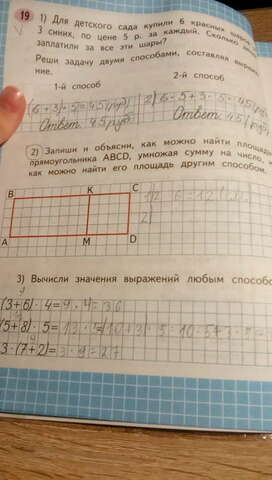 19 1) Для детского сада купили 6 красных шариков
3 синих, по цене 5 р. за каждый. Сколько
заплатили за все эти шары?
Реши задачу двумя способами, составляя выраже
ние.
1-й способ 2-й способ
(6+3)·5=45(руб) 2) 6·5+3·5=45(руб
Ответ 45 руб. Ответ 45 руб
2) Запиши и объясни, как можно найти площадь
прямоугольника ABCD, умножая сумму на число,
как можно найти его площадь другим способом.
B K C
2)
A M D
3) Вычисли значения выражений любым способо
(3+6)·4=9·4=36
(5+8)·5=13·5=
3·(7+2)=3·9=27